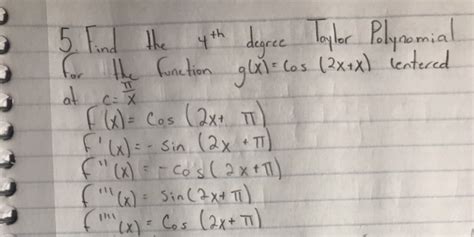 5. Find the 4th degree Taylor Polynomial
for the function g(x) = cos (2x+x) centered
at c = π/x
f(x) = cos (2x + π)
f'(x) = - sin (2x + π)
f''(x) = - cos (2x + π)
f'''(x) = sin (2x + π)
f''''(x) = cos (2x + π)